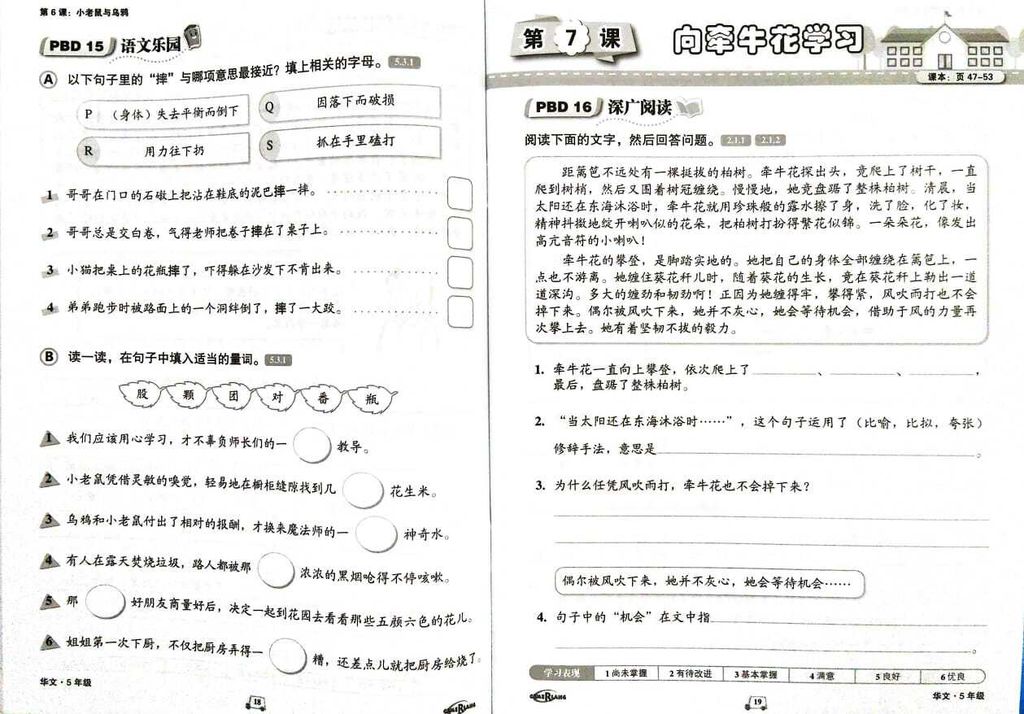 第 6 课：小老鼠与乌鸦
PBD 15 语文乐园
A 以下句子里的“摔”与哪项意思最接近？填上相关的字母。 5.3.1
P （身体）失去平衡而倒下
Q 因落下而破损
R 用力往下扔
S 抓在手里磕打
1 哥哥在门口的石礅上把沾在鞋底的泥巴摔一摔。
2 哥哥总是交白卷，气得老师把卷子摔在了桌子上。
3 小猫把桌上的花瓶摔了，吓得躲在沙发下不肯出来。
4 弟弟跑步时被路面上的一个洞绊倒了，摔了一大跤。
B 读一读，在句子中填入适当的量词。 5.3.1
股 颗 团 对 番 瓶
1 我们应该用心学习，才不辜负师长们的一 教导。
2 小老鼠凭借灵敏的嗅觉，轻易地在橱柜缝隙找到几 花生米。
3 乌鸦和小老鼠付出了相对的报酬，才换来魔法师的一 神奇水。
4 有人在露天焚烧垃圾，路人都被那 浓浓的黑烟呛得不停咳嗽。
5 那 好朋友商量好后，决定一起到花园去看看那些五颜六色的花儿。
6 姐姐第一次下厨，不仅把厨房弄得一 糟，还差点儿就把厨房给烧了。
华文·5 年级
18
第 7 课 向牵牛花学习
课本：页 47-53
PBD 16 深广阅读
阅读下面的文字，然后回答问题。 2.1.1 2.1.2
距篱笆不远处有一棵挺拔的柏树。牵牛花探出头，竟爬上了树干，一直
爬到树梢，然后又围着树冠缠绕。慢慢地，她竟盘踞了整株柏树。清晨，当
太阳还在东海沐浴时，牵牛花就用珍珠般的露水擦了身，洗了脸，化了妆，
精神抖擞地绽开喇叭似的花朵，把柏树打扮得繁花似锦。一朵朵花，像发出
高亢音符的小喇叭！
牵牛花的攀登，是脚踏实地的。她把自己的身体全部缠绕在篱笆上，一
点也不游离。她缠住葵花秆儿时，随着葵花的生长，竟在葵花秆上勒出一道
道深沟。多大的缠劲和韧劲啊！正因为她缠得牢，攀得紧，风吹雨打也不会
掉下来。偶尔被风吹下来，她并不灰心，她会等待机会，借助于风的力量再
次攀上去。她有着坚韧不拔的毅力。
1. 牵牛花一直向上攀登，依次爬上了 、 、 ，
最后，盘踞了整株柏树。
2. “当太阳还在东海沐浴时……”，这个句子运用了（比喻，比拟，夸张）
修辞手法，意思是 。
3. 为什么任凭风吹雨打，牵牛花也不会掉下来？
偶尔被风吹下来，她并不灰心，她会等待机会……
4. 句子中的“机会”在文中指 。
学习表现 1 尚未掌握 2 有待改进 3 基本掌握 4 满意 5 良好 6 优良
19
华文·5 年级